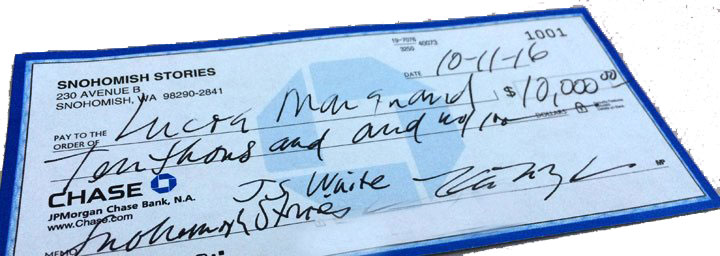 1001
19-7076
3250
40073
SNOHOMISH STORIES
230 AVENUE B
SNOHOMISH, WA 98290-2841
DATE 10-11-16
PAY TO THE
ORDER OF Lucia $ 10,000 00
Ten thous and and no/100 DOLLARS
CHASE
JPMorgan Chase Bank, N.A.
www.Chase.com
J.S. White
MEMO Snohomish Stories
MP